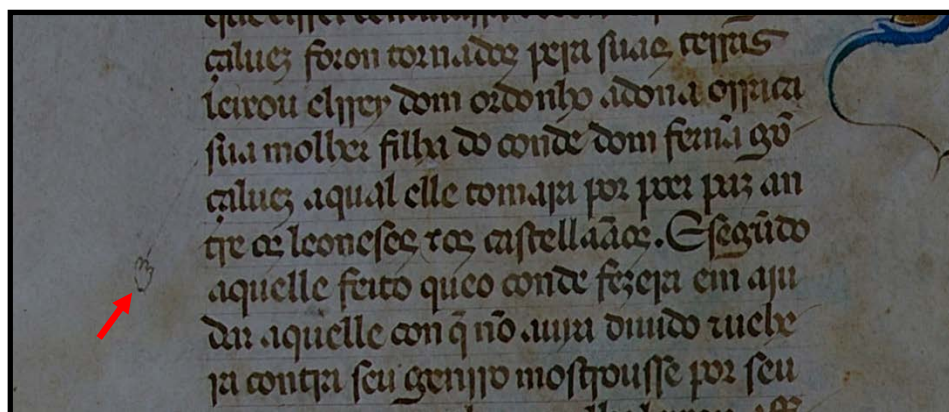 çaluez foron tornados pera suas terras
leixou elrrey dom ordonho a dona orraca
sua molher filha do conde dom fernã gõ
çaluez a qual elle tomara por poer paz an
tre os leoneses τ os castellããos. E segũdo
aquelle feito que o conde fezera em aju
dar aquelle con q̃ nõ auya diuido τ uehe
ra contra seu genrro mostrousse por seu